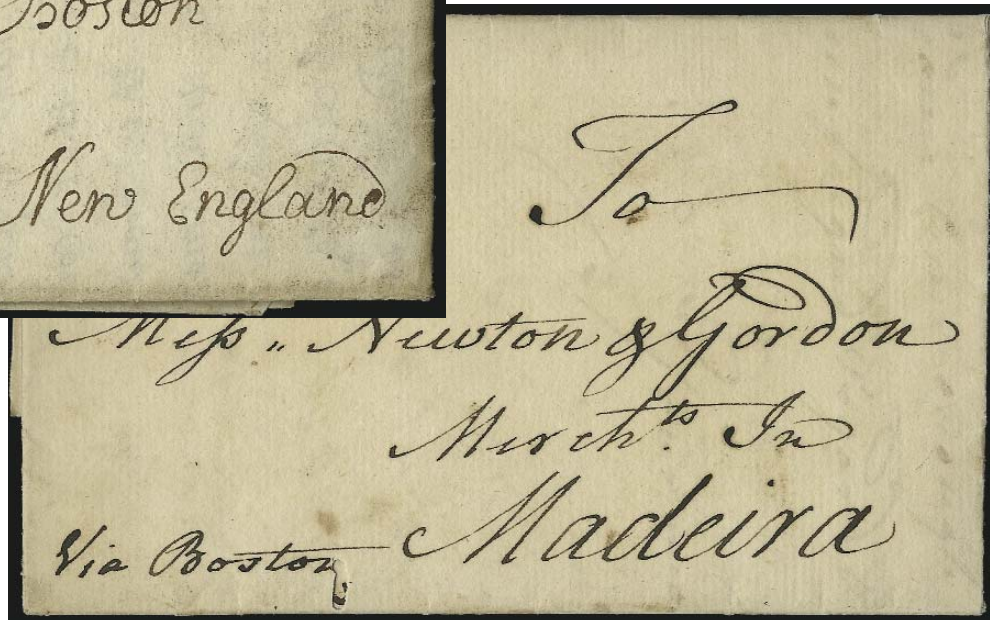 Boston
New England
To
Mess,, Newton & Gordon
Merchts. In
Madeira
Via Boston